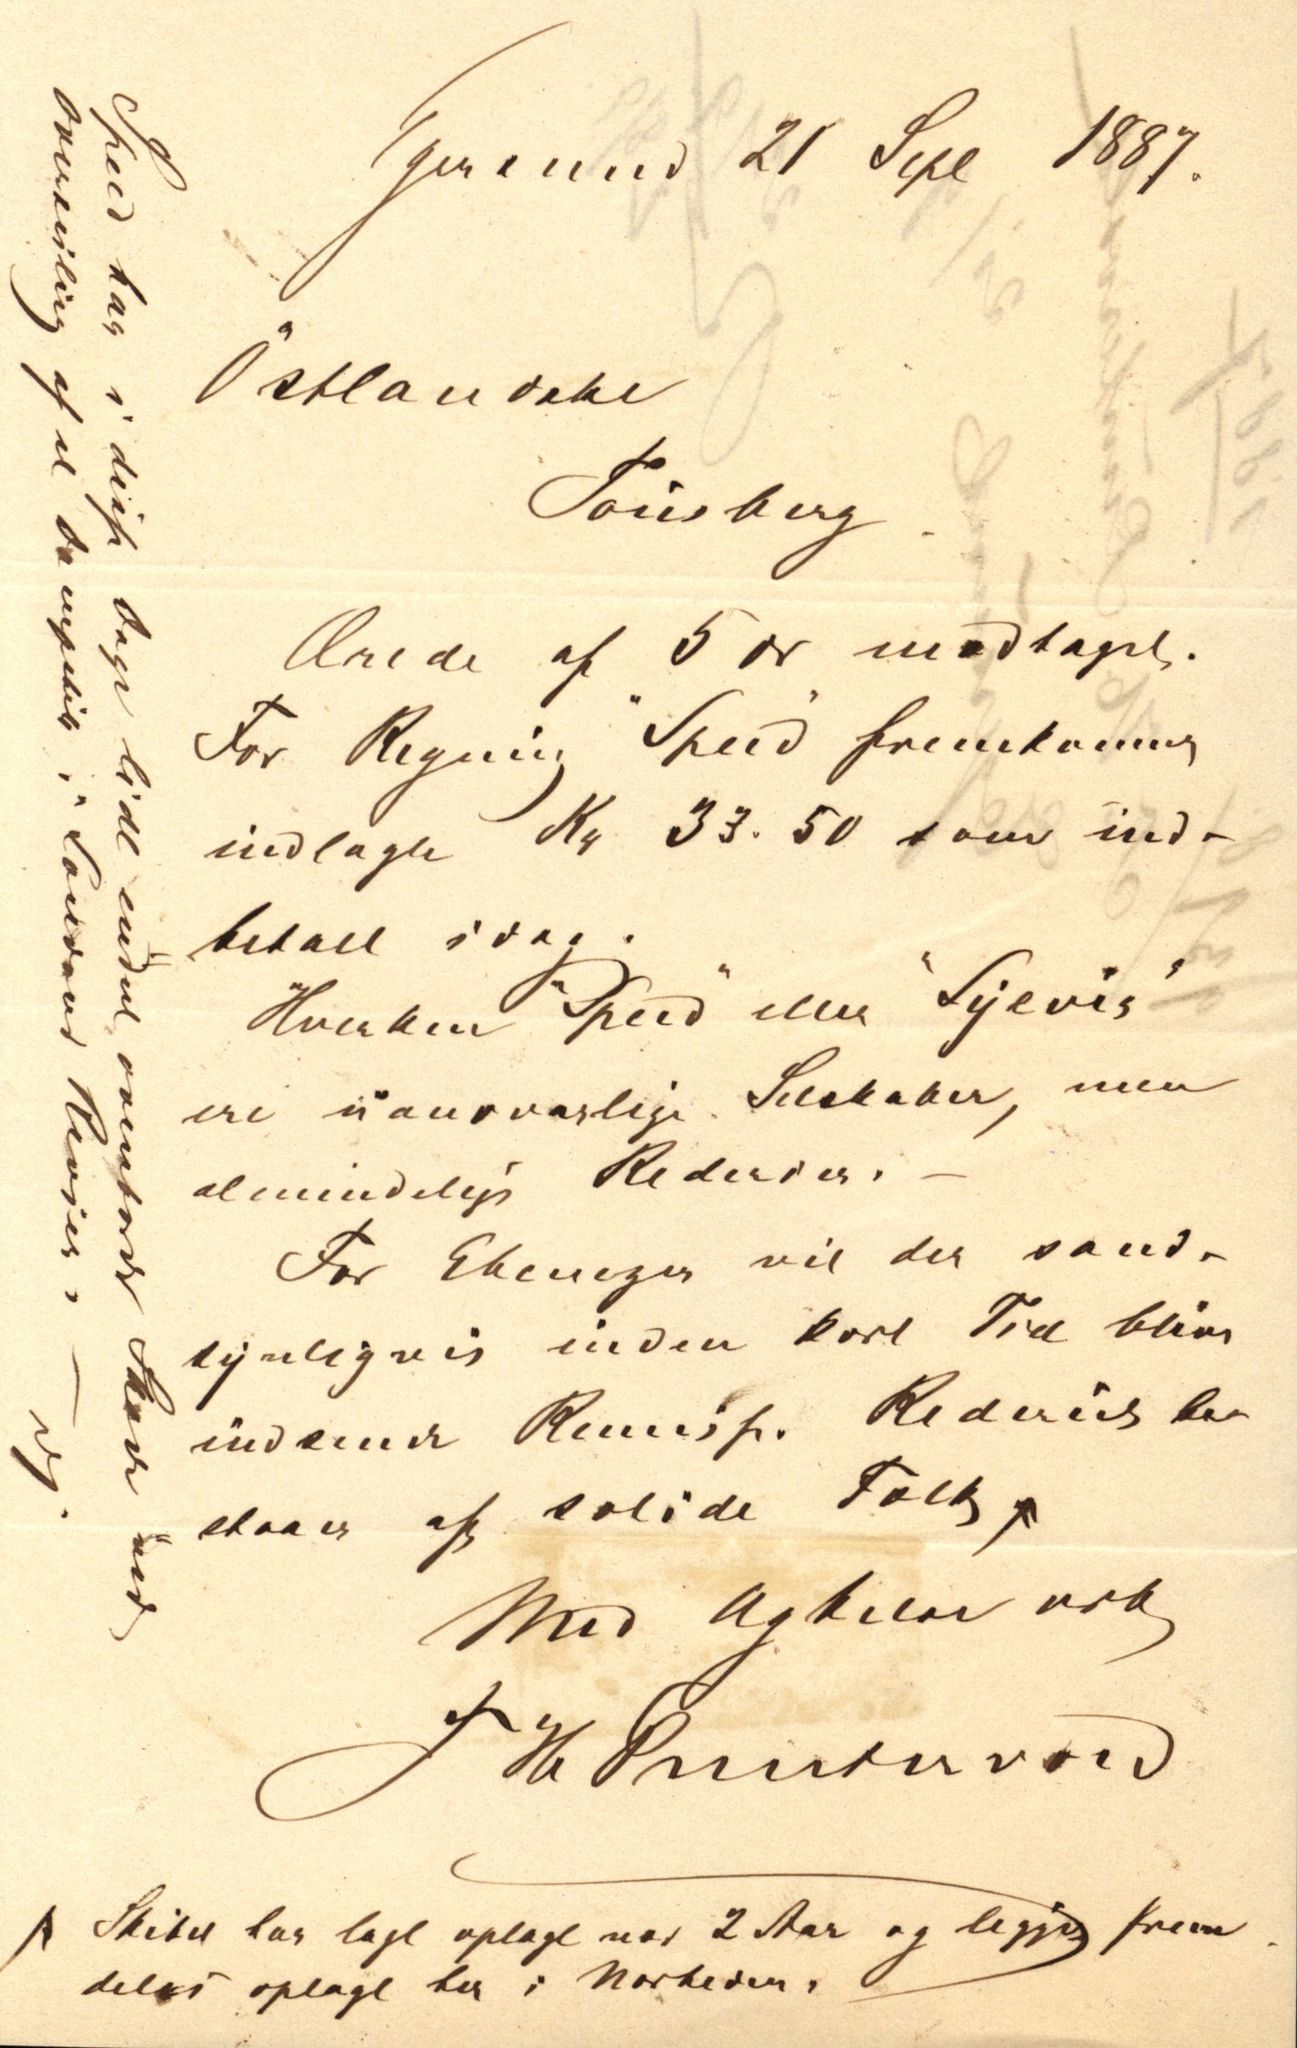 Egersund 21 Sept 1887.
Östlandske
Tønsberg.
Ærede af 5 ds modtaget.
For Regning "Speed" fremkommer
indlagte Kr 33.50 som ind-
betalt idag.
Hverken "Speed" eller "Sylvia"
ere uansvarlige Selskaber, men
almindelige Rederier. —
For Ebenezer vil der sand-
synligvis inden kort Tid blive
indsendt Remisse. Rederiet be-
staaer af solide Folk
Med Agtelse
Skibet har lagt oplagt nær 2 Aar og ligger frem
deles oplagt her i
Speed har i disse Dage lidt endel Skade ved
Overseiling af et Dampskib i Londons Revier. —